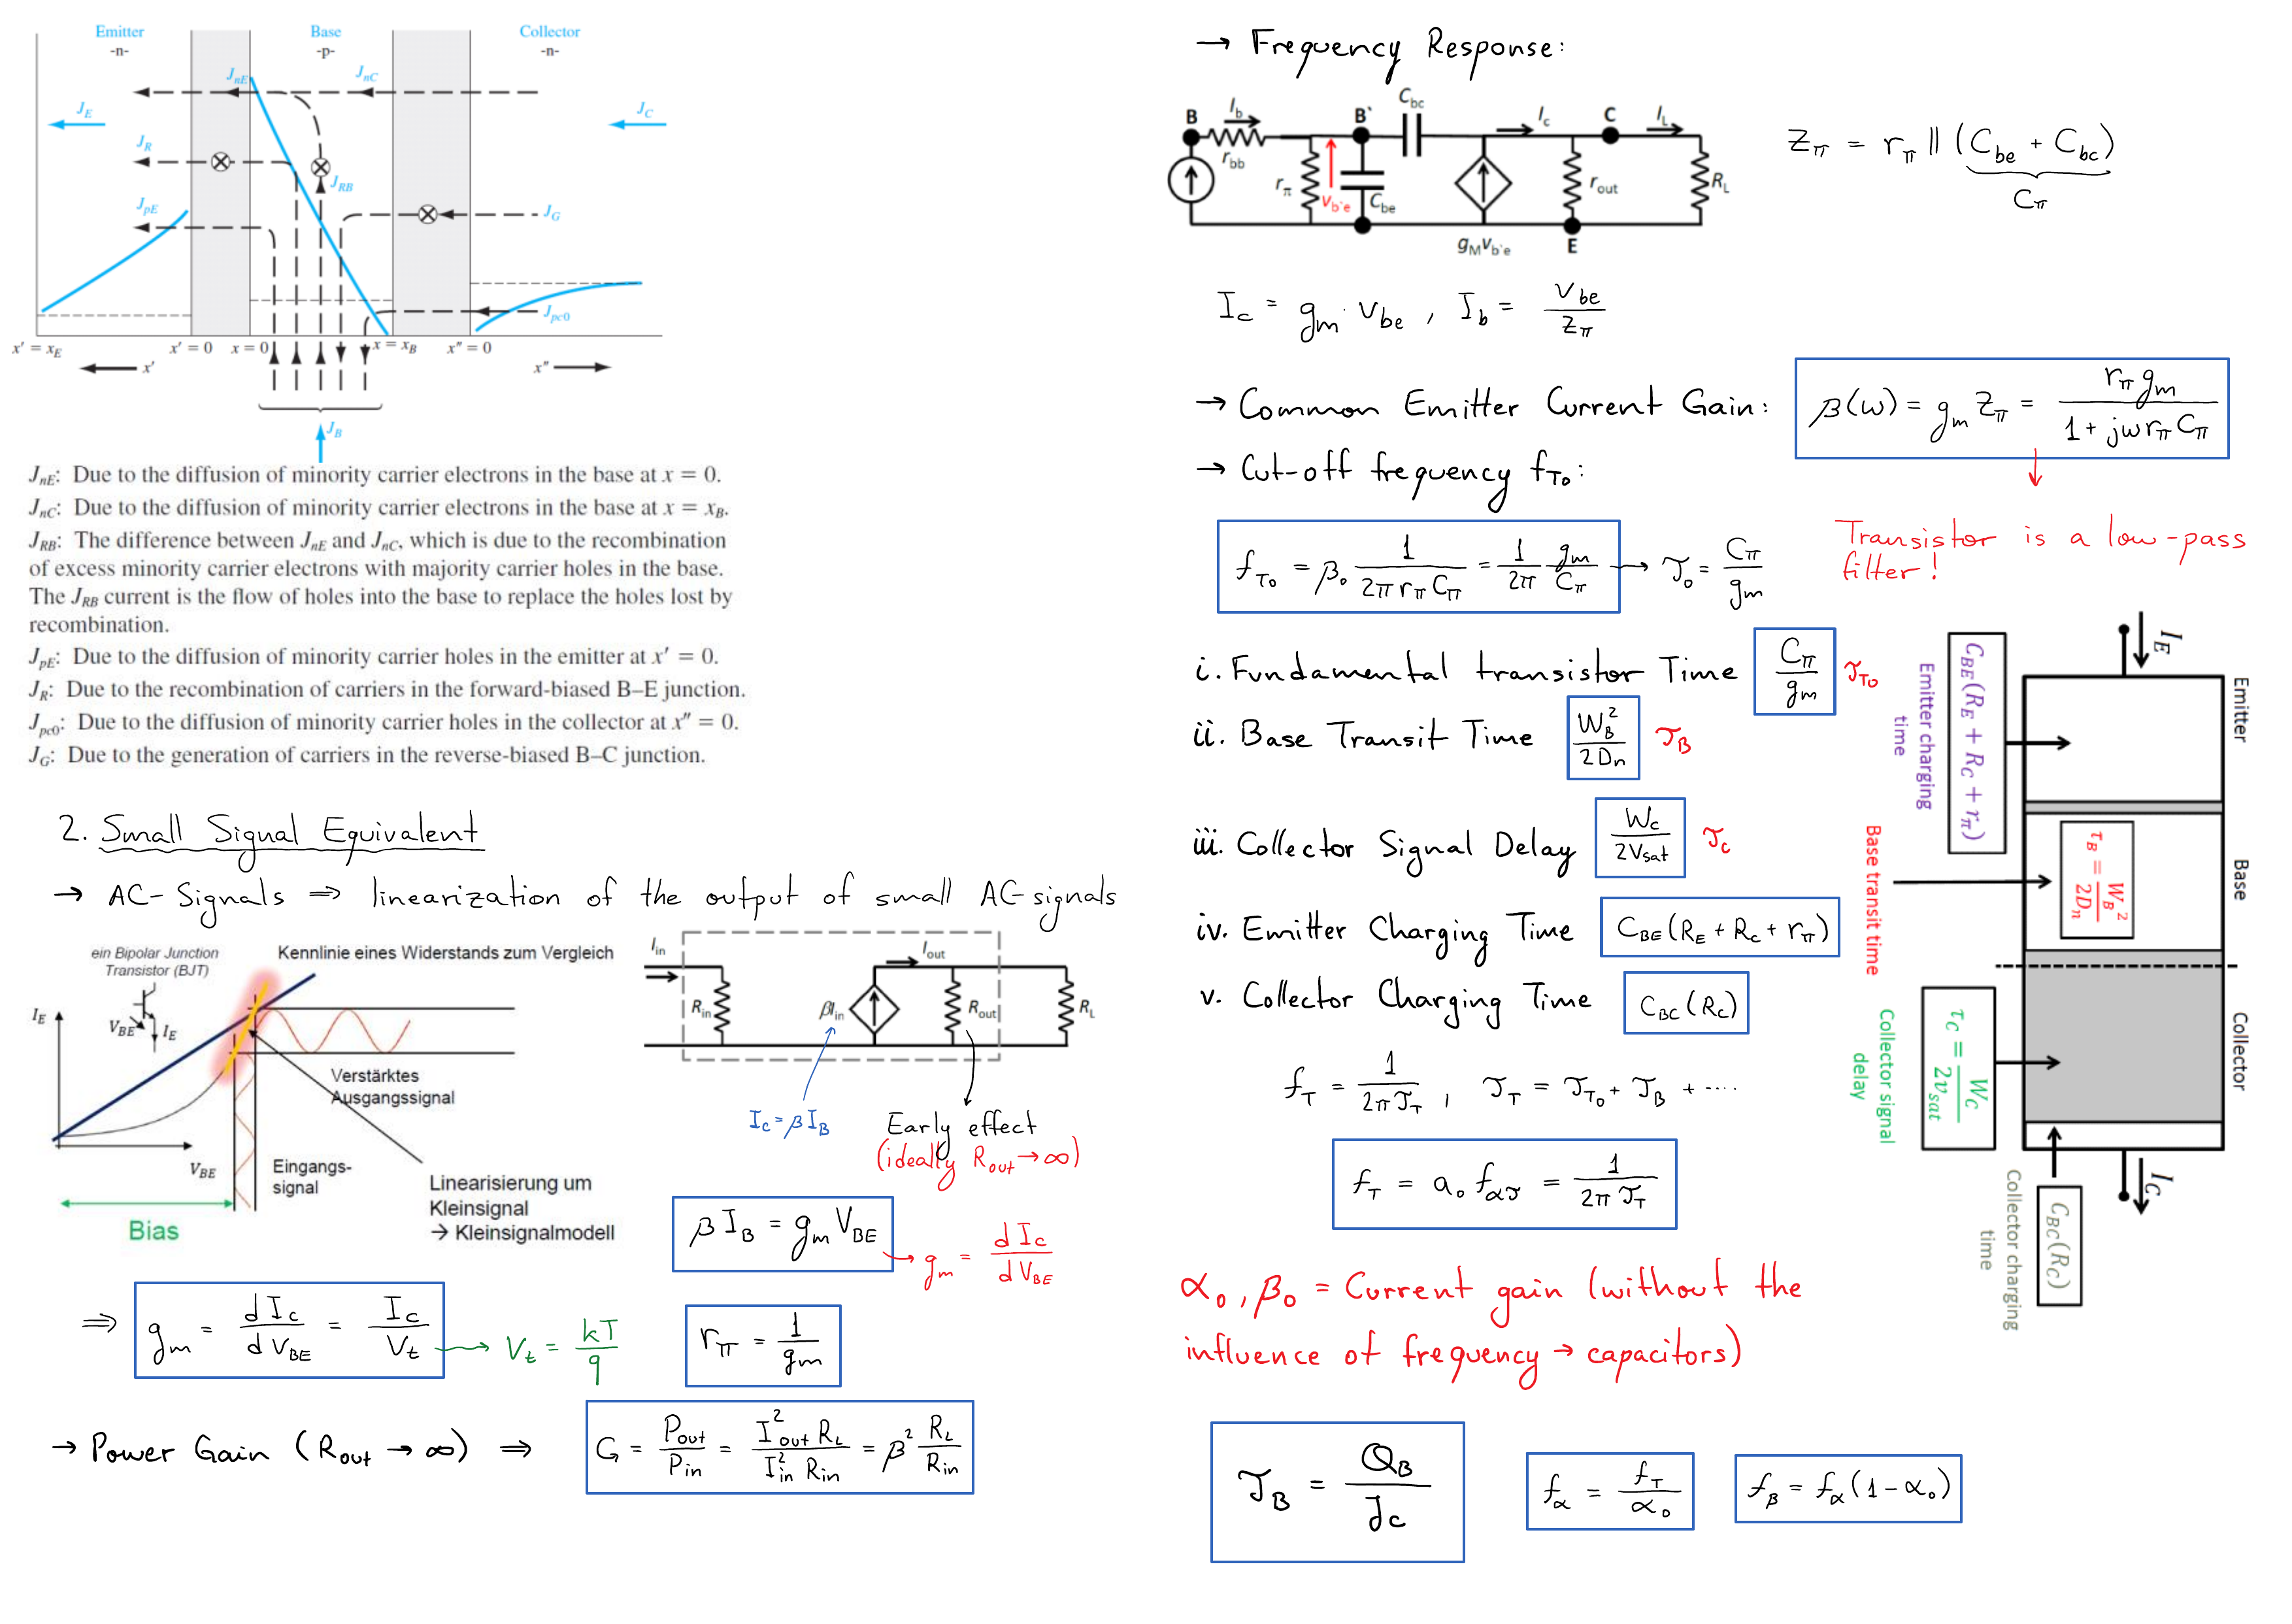 Emitter Base Collector
-n- -p- -n-
J_nE J_nC
J_E J_C
J_R
J_RB
J_pE J_G
J_pc0
x′ = x_E x′ = 0 x = 0 x = x_B x″ = 0
x′ x″
J_B
J_nE: Due to the diffusion of minority carrier electrons in the base at x = 0.
J_nC: Due to the diffusion of minority carrier electrons in the base at x = x_B.
J_RB: The difference between J_nE and J_nC, which is due to the recombination
of excess minority carrier electrons with majority carrier holes in the base.
The J_RB current is the flow of holes into the base to replace the holes lost by
recombination.
J_pE: Due to the diffusion of minority carrier holes in the emitter at x′ = 0.
J_R: Due to the recombination of carriers in the forward-biased B–E junction.
J_pc0: Due to the diffusion of minority carrier holes in the collector at x″ = 0.
J_G: Due to the generation of carriers in the reverse-biased B–C junction.
2. Small Signal Equivalent
→ AC-Signals ⇒ linearization of the output of small AC-signals
ein Bipolar Junction
Transistor (BJT)
Kennlinie eines Widerstands zum Vergleich
I_E
V_BE I_E
Verstärktes
Ausgangssignal
V_BE
Eingangs-
signal
Bias
Linearisierung um
Kleinsignal
→ Kleinsignalmodell
I_in I_out
R_in βI_in R_out R_L
I_c = β I_B
Early effect
(ideally R_out → ∞)
β I_B = g_m V_BE
g_m = d I_c / d V_BE
⇒ g_m = d I_c / d V_BE = I_c / V_t → V_t = kT / q
r_π = 1 / g_m
→ Power Gain (R_out → ∞) ⇒ G = P_out / P_in = I²_out R_L / I²_in R_in = β² R_L / R_in
→ Frequency Response:
B I_b B` C_bc I_c C I_L
r_bb r_π V_b`e C_be r_out R_L
g_M V_b`e E
Z_π = r_π || (C_be + C_bc)
C_π
I_c = g_m · V_be , I_b = V_be / Z_π
→ Common Emitter Current Gain: β(ω) = g_m Z_π = r_π g_m / (1 + jω r_π C_π)
→ Cut-off frequency f_T0:
Transistor is a low-pass
filter!
f_T0 = β_0 1 / (2π r_π C_π) = 1/2π g_m / C_π → τ_0 = C_π / g_m
i. Fundamental transistor Time C_π / g_m τ_T0
ii. Base Transit Time W_B² / 2D_n τ_B
iii. Collector Signal Delay W_c / 2V_sat τ_c
iv. Emitter Charging Time C_BE (R_E + R_c + r_π)
v. Collector Charging Time C_BC (R_c)
f_T = 1 / (2π τ_T) , τ_T = τ_T0 + τ_B + ....
f_T = a_0 f_ατ = 1 / (2π τ_T)
α_0, β_0 = Current gain (without the
influence of frequency → capacitors)
τ_B = Q_B / J_c
f_α = f_T / α_0
f_β = f_α (1 - α_0)
I_E
Emitter
C_BE(R_E + R_C + r_π)
Emitter charging
time
Base
τ_B = W_B² / 2D_n
Base transit time
Collector
τ_C = W_C / 2v_sat
Collector signal
delay
I_C
C_BC(R_C)
Collector charging
time